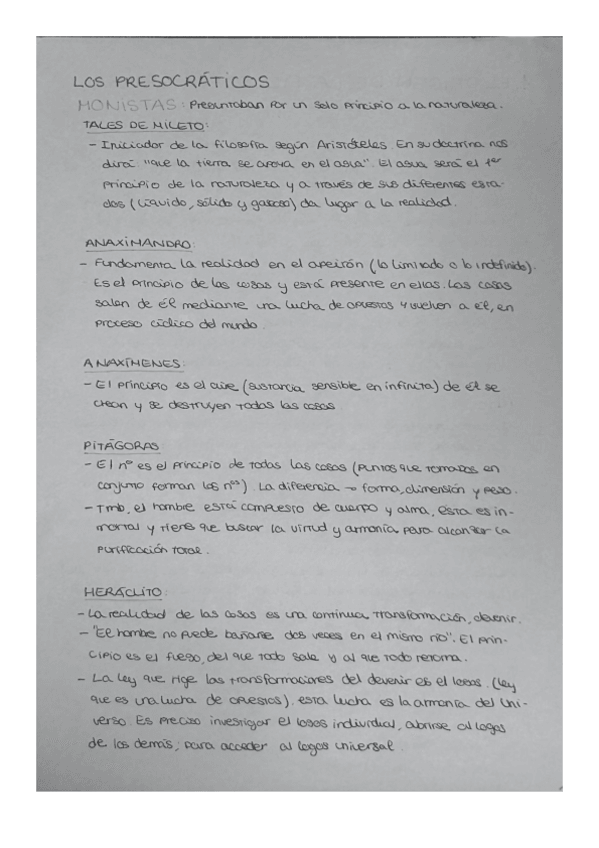 LOS PRESOCRÁTICOS
MONISTAS: Presentaban por un solo principio a la naturaleza.
TALES DE MILETO:
- Iniciador de la filosofía según Aristóteles. En su doctrina nos
dirá "que la tierra se apoya en el agua". El agua será el 1er
principio de la naturaleza y a través de sus diferentes esta-
dos (líquido, sólido y gaseoso) da lugar a la realidad.
ANAXIMANDRO:
- Fundamenta la realidad en el apeirón (lo limitado o lo indefinido).
Es el principio de las cosas y está presente en ellas. Las cosas
salen de él mediante una lucha de opuestos y vuelven a él, en
proceso cíclico del mundo.
ANAXÍMENES:
- El principio es el aire (sustancia sensible en infinita) de él se
crean y se destruyen todas las cosas
PITÁGORAS:
- El nº es el principio de todas las cosas (puntos que tomados en
conjunto forman los nºs). La diferencia → forma, dimensión y peso.
- Tmb, el hombre está compuesto de cuerpo y alma, esta es in-
mortal y tiene que buscar la virtud y armonía para alcanzar la
purificación total.
HERÁCLITO:
- La realidad de las cosas es una continua transformación, devenir.
- "El hombre no puede bañarse dos veces en el mismo río". El prin-
cipio es el fuego, del que todo sale y al que todo retorna.
- La ley que rige las transformaciones del devenir es el logos. (ley
que es una lucha de opuestos), esta lucha es la armonía del Uni-
verso. Es preciso investigar el logos individual, abrirse al logos
de los demás, para acceder al logos universal.